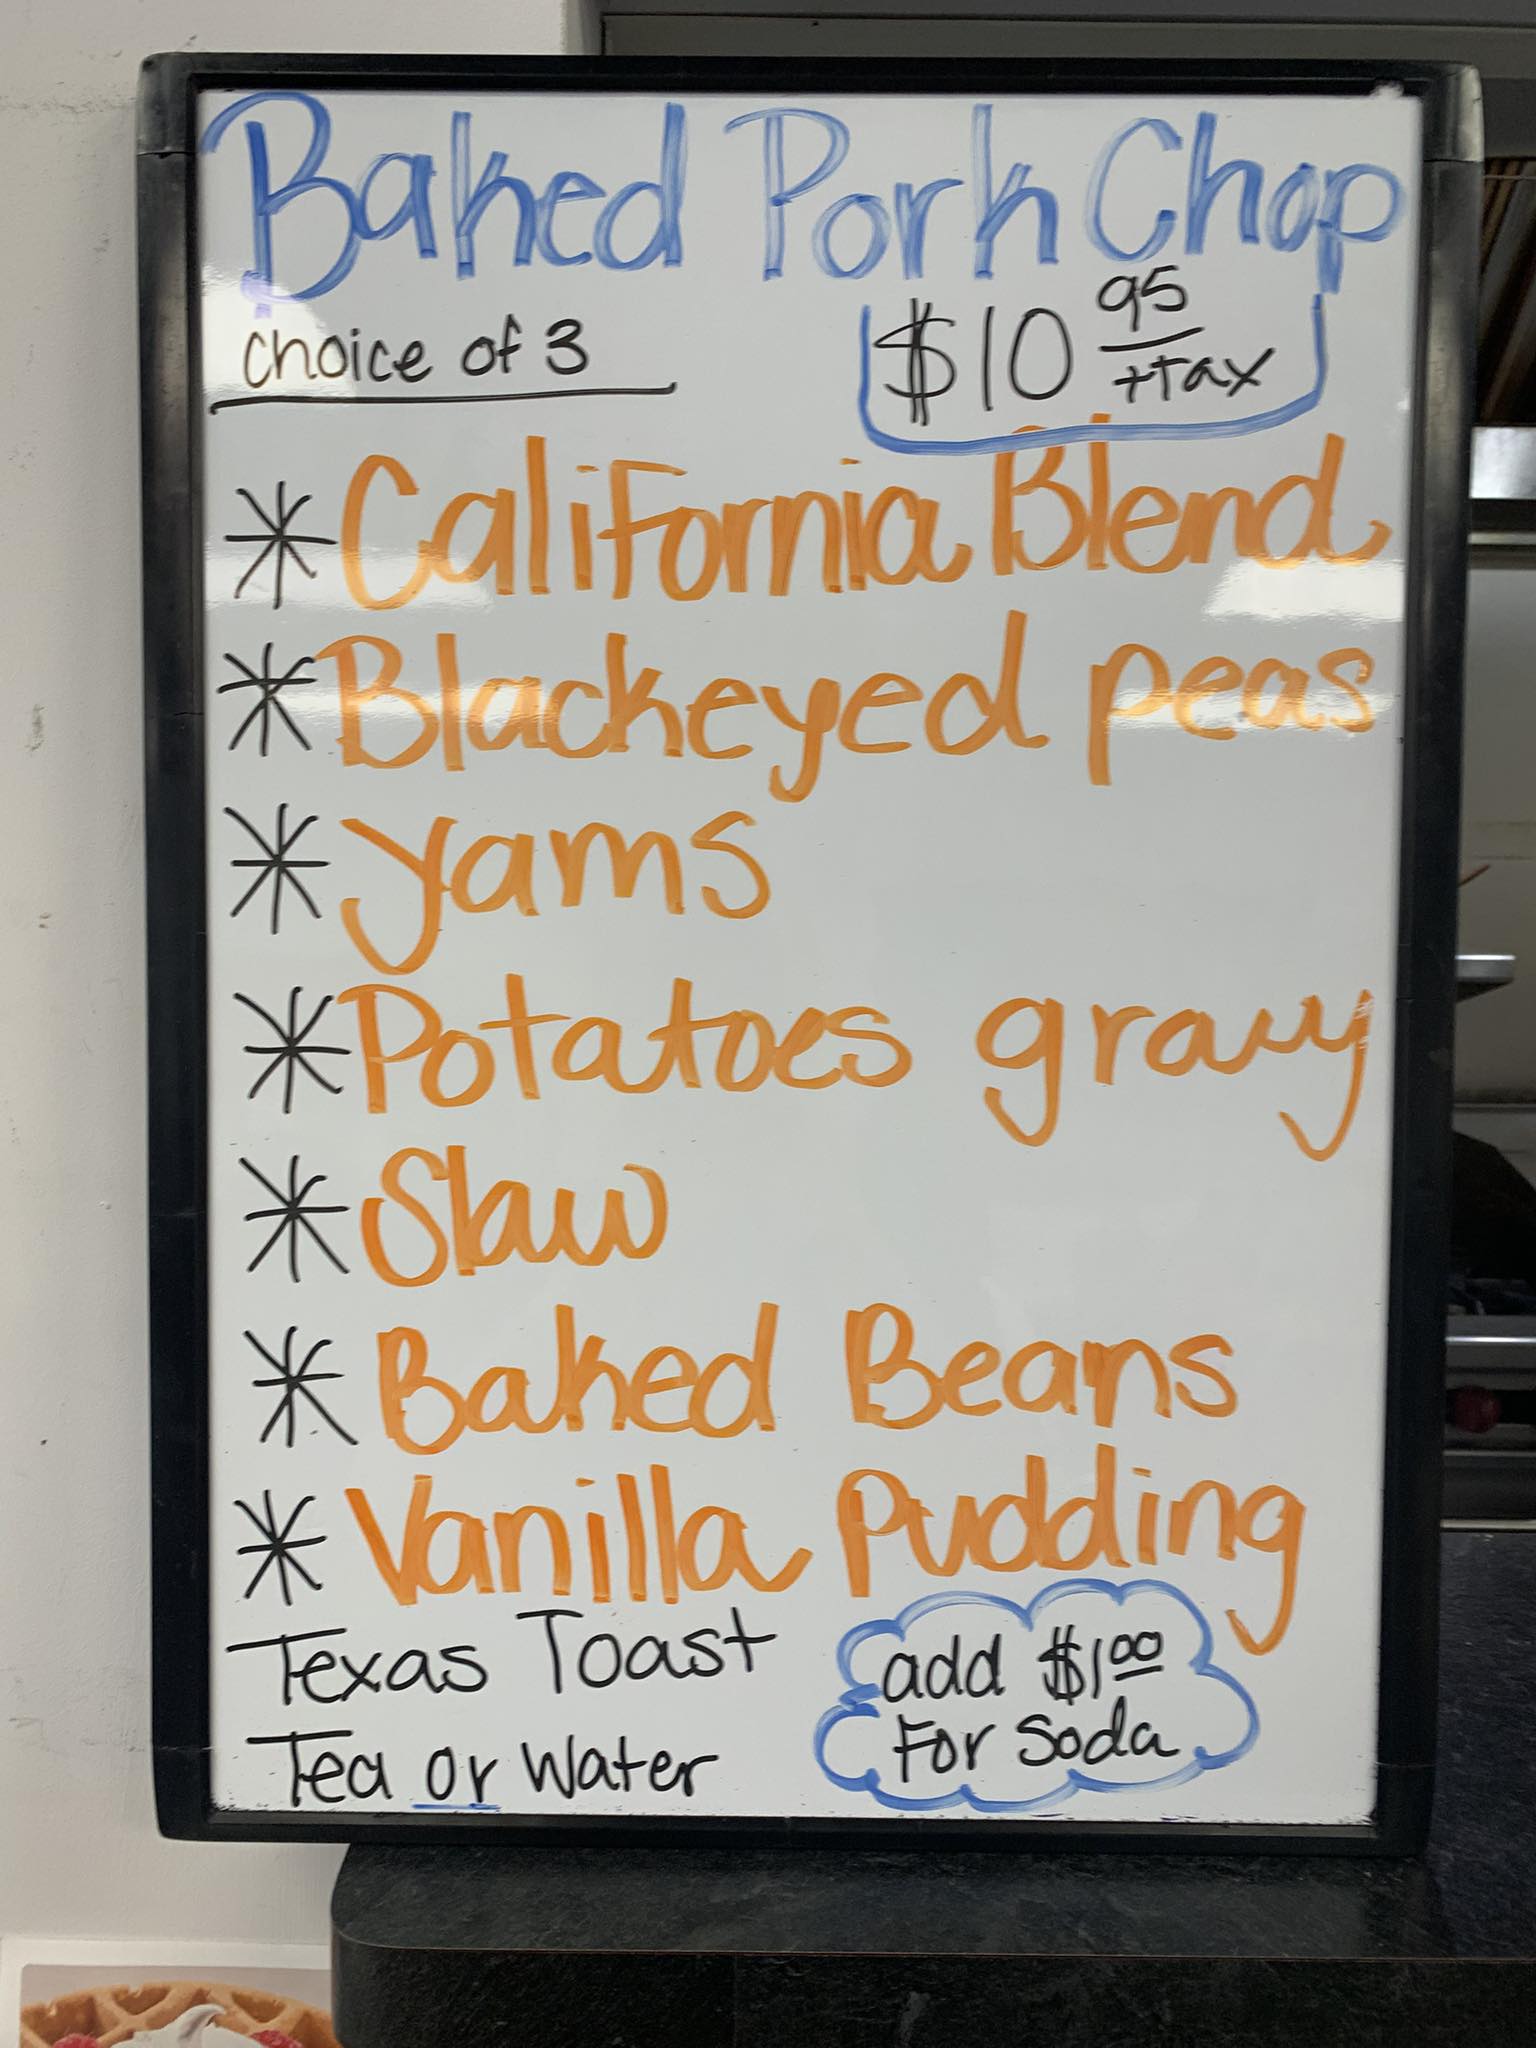 Baked Pork Chop
choice of 3
$10 95 +tax
* California Blend
* Blackeyed peas
* yams
* Potatoes gravy
* Slaw
* Baked Beans
* Vanilla Pudding
Texas Toast
Tea or Water
add $1 00
For Soda